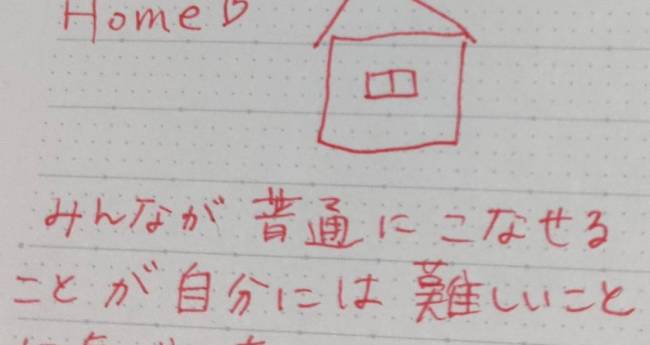 Home
みんなが普通にこなせる
ことが自分には難しいこと